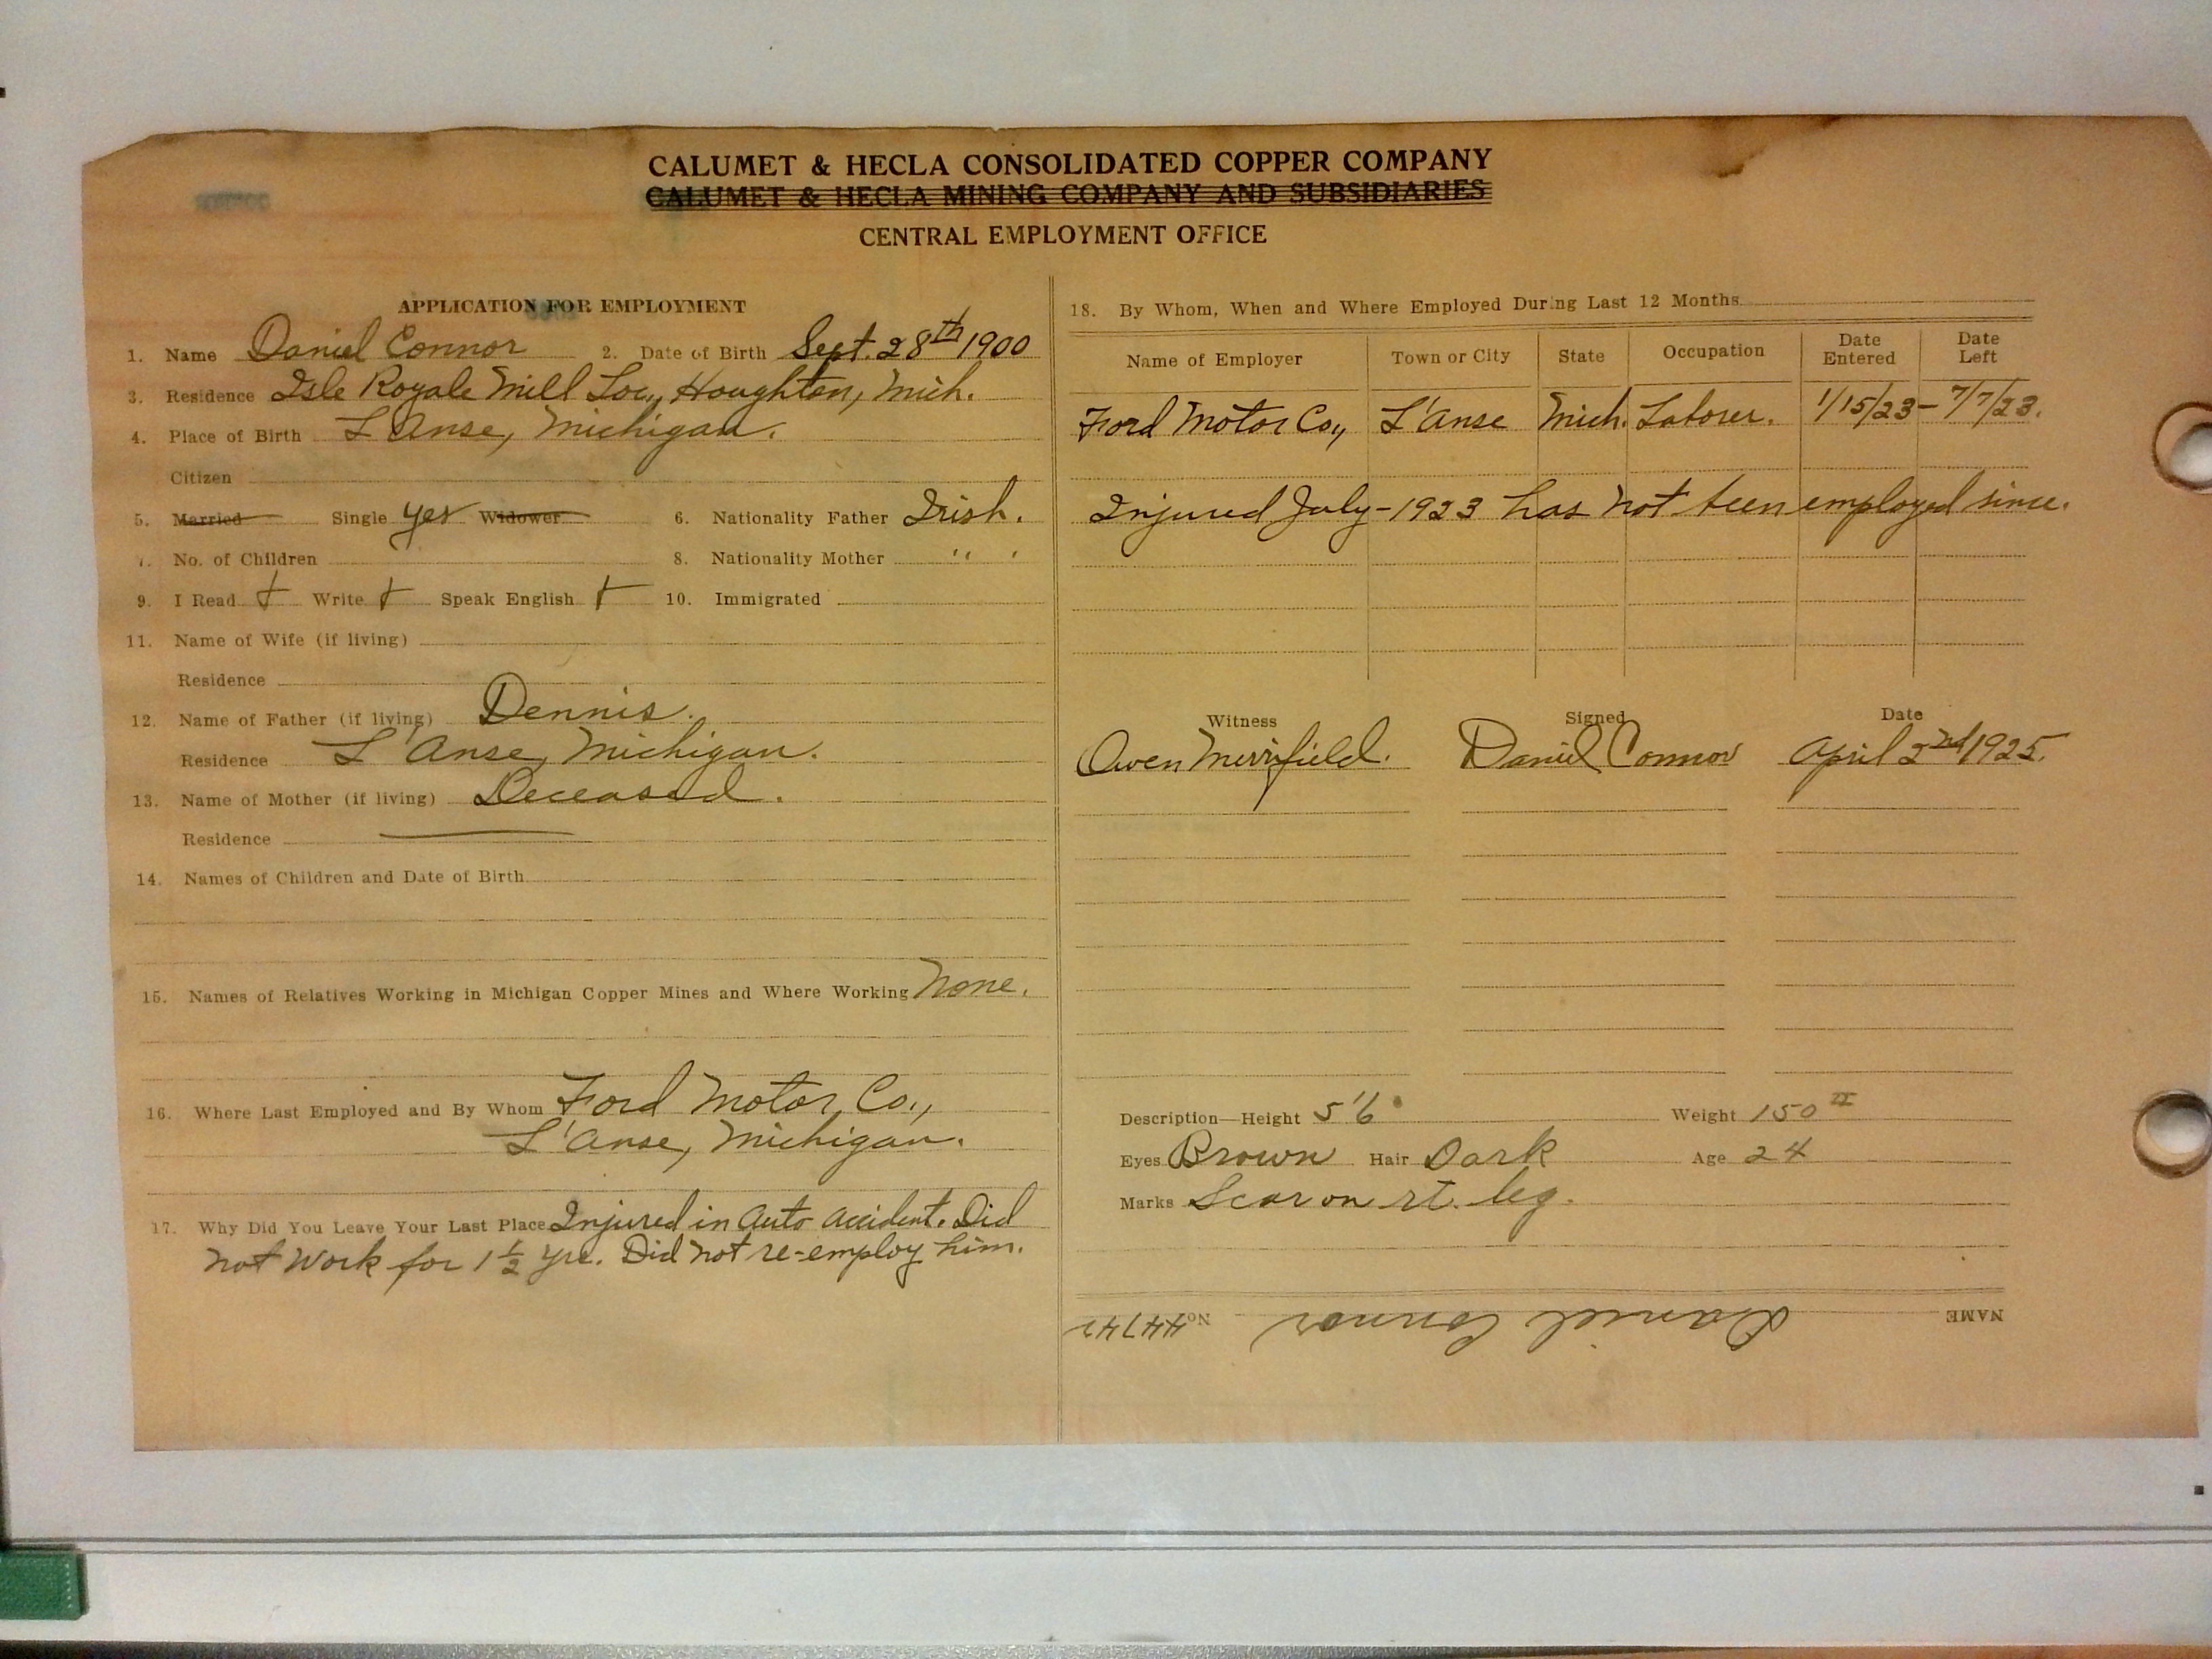 CALUMET & HECLA CONSOLIDATED COPPER COMPANY
CALUMET & HECLA MINING COMPANY AND SUBSIDIARIES
CENTRAL EMPLOYMENT OFFICE
APPLICATION FOR EMPLOYMENT
1. Name Daniel Connor 2. Date of Birth Sept. 28th 1900
3. Residence Isle Royale Mill Loc., Houghton, Mich.
4. Place of Birth L'Anse, Michigan.
Citizen
5. Married Single yes Widower 6. Nationality Father Irish.
7. No. of Children 8. Nationality Mother " "
9. I Read † Write † Speak English † 10. Immigrated
11. Name of Wife (if living)
Residence
12. Name of Father (if living) Dennis.
Residence L'Anse, Michigan.
13. Name of Mother (if living) Deceased.
Residence
14. Names of Children and Date of Birth
15. Names of Relatives Working in Michigan Copper Mines and Where Working None.
16. Where Last Employed and By Whom Ford Motor Co.,
L'Anse, Michigan.
17. Why Did You Leave Your Last Place Injured in Auto Accident. Did
not work for 1 1/2 yrs. Did not re-employ him.
18. By Whom, When and Where Employed During Last 12 Months
Name of Employer Town or City State Occupation Date Entered Date Left
Ford Motor Co., L'Anse Mich. Laborer. 1/15/23 - 7/7/23.
Injured July - 1923 has not been employed since.
Witness Signed Date
Owen Merrifield. Daniel Connor April 2nd 1925.
Description—Height 5'6" Weight 150 #
Eyes Brown Hair Dark Age 24
Marks Scar on rt. leg.
NAME Daniel Connor No. 44742